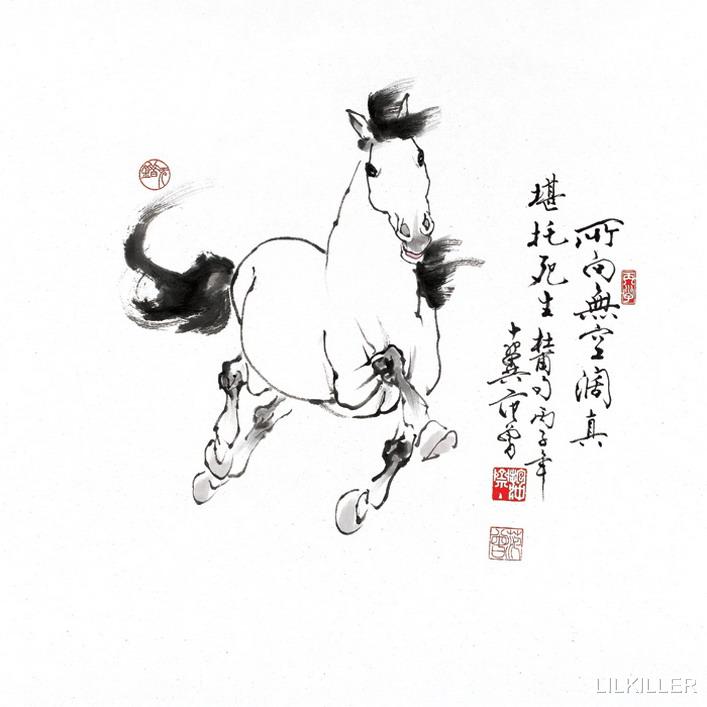 所向無空闊真
堪托死生 杜甫句丙子年
十翼范曾
LILKILLER